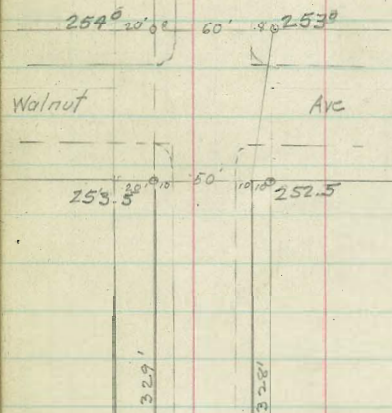 254⁰ 20' 8 60' 8 253⁰
Walnut Ave
253.5 20' 10' 50' 10' 10' 252.5
329' 328'